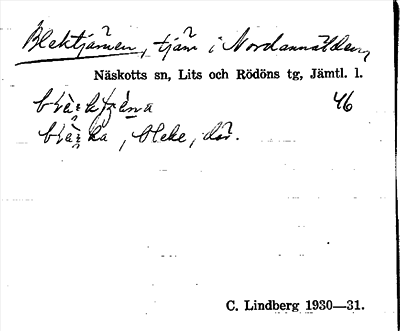 Blektjärnen, tjärn i Nordannälden,
Näskotts sn, Lits och Rödöns tg, Jämtl. l.
46
bleke, där.
C. Lindberg 1930—31.